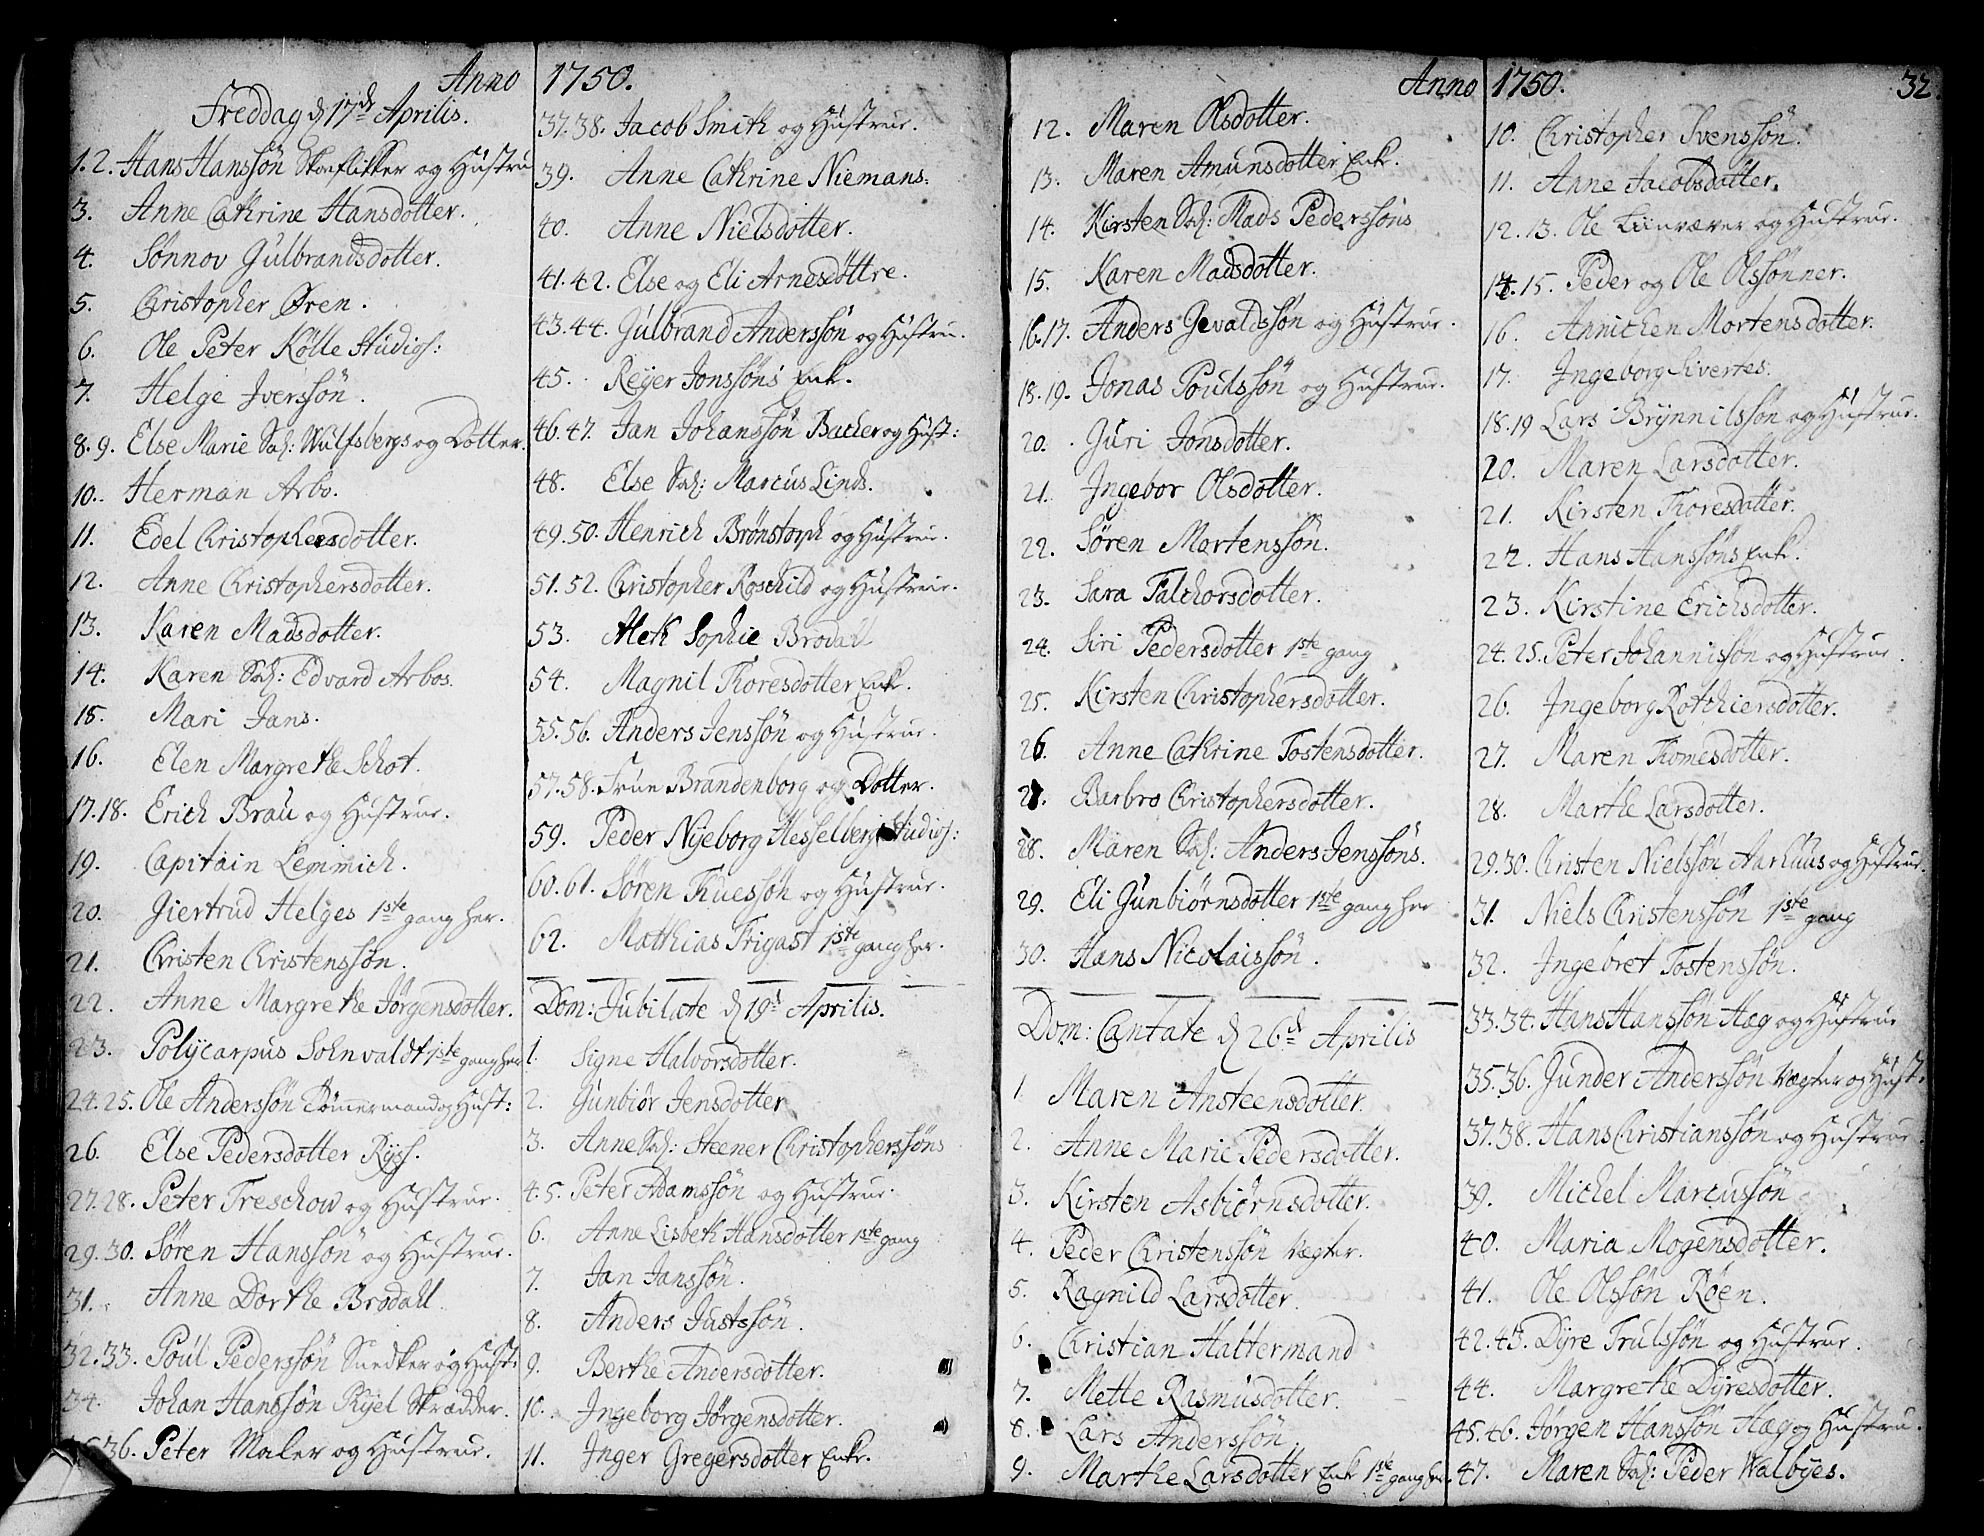 Anno 1750.
Freddag d 17de Aprilis.
1. 2. Hans Hanssøn Skoeflikker og Hustru
3. Anne Cathrine Hansdotter.
4. Sønnov Gulbrandsdotter.
5. Christopher Øren.
6. Ole Peter Kolle Studios:
7. Helge Iverssøn.
8. 9. Else Marie Sal: Wulfsbergs og Dotter.
10. Herman Arbo.
11. Edel Christophersdotter.
12. Anne Christophersdotter.
13. Karen Madsdotter.
14. Karen Sal: Edvard Arbos.
15. Mari Jans.
16. Elen Margrethe Schot.
17. 18. Erich Brau og Hustrue.
19. Capitain Lemmich.
20. Giertrud Helges 1ste gang her.
21. Christen Christenssøn.
22. Anne Margrethe Jørgensdotter.
23. Polycarpus Sohnvaldt 1ste gang her
24. 25. Ole Anderssøn Tømermand og Hust:
26. Else Pedersdotter Rys.
27. 28. Peter Treschow og Hustrue.
29. 30. Søren Hanssøn og Hustrue.
31. Anne Dorthe Brodahl.
32. 33. Poul Pederssøn Snedker og Hust:
34. Johan Hanssøn Kyel Skrædder.
36. Peter Maler og Hustrue.
37. 38. Jacob Smith og Hustrue.
39. Anne Cathrine Niemans:
40. Anne Nielsdotter.
41. 42. Else og Eli Arnesdøttre.
43. 44. Gulbrand Anderssøn og Hustru.
45. Reyer Jonssøns Enk.
46. 47. Jan Johanssøn Bacher og Hust:
48. Else Sal: Marcus Linds.
49. 50. Henrich Brønstorph og Hustrue.
51. 52. Christopher Roschild og Hustrue.
53. Aleth Sophie Brodahl
54. Magnil Thoresdotter Enk.
55. 56. Anders Jenssøn og Hustrue.
57. 58. Frue Brandenborg og Dotter.
59. Peder Nyeborg Hesselberg Studios:
60. 61. Søren Thuessøn og Hustrue.
62. Mathias Trigast 1ste gang her.
Dom: Jubilate d 19d Aprilis.
1. Signe Halvorsdotter.
2. Gunbiør Jensdotter
3. Anne Sal: Steener Christopherssøns
4. 5. Peter Adamssøn og Hustrue.
6. Anne Lisbeth Hansdotter 1ste gang
7. Jan Janssøn.
8. Anders Justssøn.
9. Berthe Andersdotter.
10. Ingeborg Jørgensdotter.
11. Inger Gregersdotter Enk.
Anno 1750. 32.
12. Maren Olsdotter.
13. Maren Amunsdotter Enk.
14. Kirsten Sal: Mads Pederssøns
15. Karen Madsdotter.
16. 17. Anders Gevaldssøn og Hustrue.
18. 19. Jonas Poulssøn og Hustrue.
20. Guri Jonsdotter.
21. Ingebor Olsdotter.
22. Søren Mortenssøn.
23. Sara Falchorsdotter.
24. Siri Pedersdotter 1ste gang
25. Kirsten Christophersdotter.
26. Anne Cathrine Tostensdotter.
27. Barbro Christophersdotter.
28. Maren Sal: Anders Jenssøns.
29. Eli Gunbiørnsdotter 1ste gang her
30. Hans Nicolaissøn.
Dom: Cantate d 26d Aprilis
1. Maren Ansteensdotter.
2. Anne Marie Pedersdotter.
3. Kirsten Asbiørnsdotter.
4. Peder Christenssøn Vægter.
5. Ragnild Larsdotter.
6. Christian Haltermand
7. Mette Rasmusdotter.
8. Lars Anderssøn.
9. Marthe Larsdotter Enk 1ste gang her.
10. Christopher Svenssøn.
11. Anne Jacobsdatter.
12. 13. Ole Linvæver og Hustrue.
14. 15. Peder og Ole Olssønner.
16. Annichen Mortensdotter.
17. Ingeborg Sivertes.
18. 19 Lars Brynnilssøn og Hustrue.
20. Maren Larsdotter.
21. Kirsten Thoresdotter.
22. Hans Hanssøns Enk.
23. Kirstine Erichsdotter.
24. 25. Peter Johannissøn og Hustrue.
26. Ingeborg Rotchiersdotter.
27. Maren Thomesdotter.
28. Marthe Larsdotter.
29. 30. Christen Nielssøn Aarhuus og Hustrue.
31. Niels Christenssøn 1ste gang
32. Ingebret Tostenssøn.
33. 34. Hans Hanssøn Hæg og Hustrue
35. 36. Gunder Anderssøn Vægter og Hust:
37. 38. Hans Christianssøn og Hustrue.
39. Michel Marcussøn
40. Maria Mogensdotter.
41. Ole Olssøn Røen.
42. 43. Dyre Trulssøn og Hustrue.
44. Margrethe Dyresdotter.
45. 46. Jørgen Hanssøn Hæg og Hustru.
47. Maren Sal: Peder Walbyes.